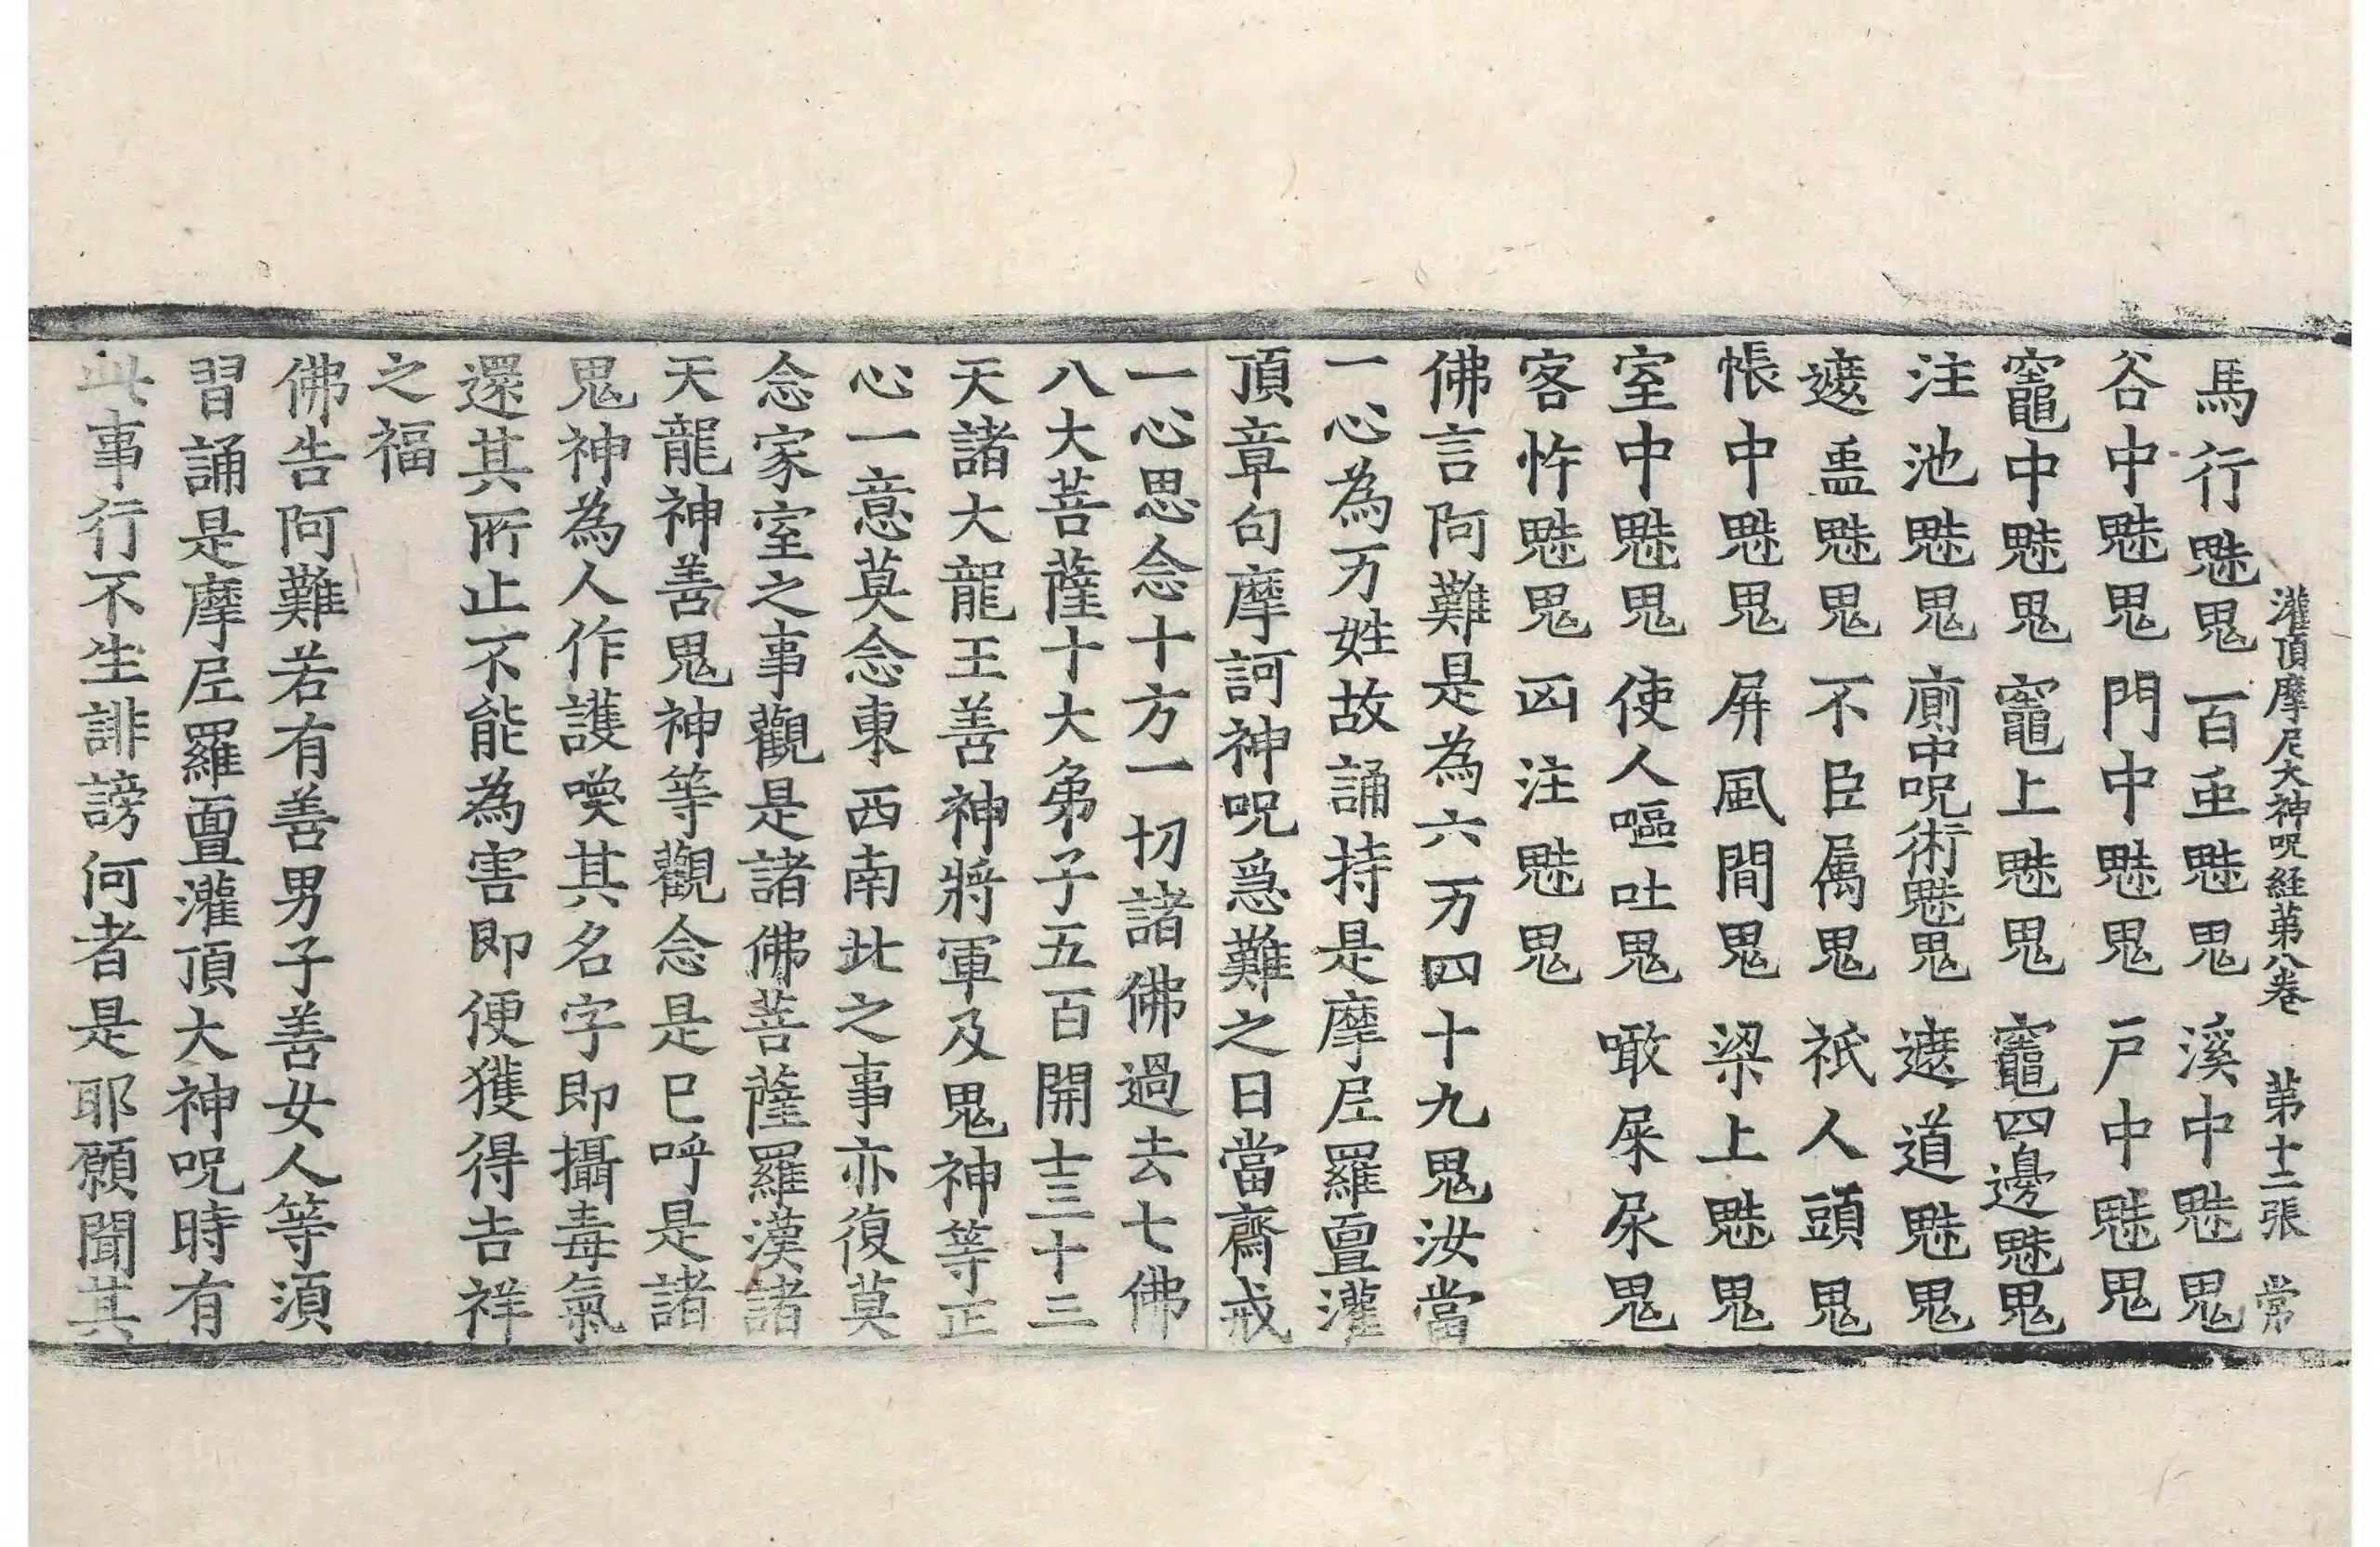 灌頂摩尼大神呪経苐八卷 苐十二張 常
馬行魅鬼 百䖝魅鬼 溪中魅鬼
谷中魅鬼 門中魅鬼 戶中魅鬼
竈中魅鬼 竈上魅鬼 竈四邊魅鬼
注池魅鬼 廁中呪術魅鬼 遮道魅鬼
遮盍魅鬼 不臣属鬼 祇人頭鬼
帳中魅鬼 屏風間鬼 梁上魅鬼
室中魅鬼 使人嘔吐鬼 噉屎尿鬼
客忤魅鬼 凶注魅鬼
佛言阿難是為六万四十九鬼汝當
一心為万姓故誦持是摩尼羅亶灌
頂章句摩訶神呪為急難之日當齋戒
一心思念十方一切諸佛過去七佛
八大菩薩十大弟子五百開士三十三
天諸大龍王善神將軍及鬼神等正
心一意莫念東西南北之事亦復莫
念家室之事觀是諸佛菩薩羅漢諸
天龍神善鬼神等觀念是已呼是諸
鬼神為人作護喚其名字即攝毒氣
還其所止不能為害即便獲得吉祥
之福
佛告阿難若有善男子善女人等湏
習誦是摩尼羅亶灌頂大神呪時有
此事行不生誹謗何者是耶願聞其